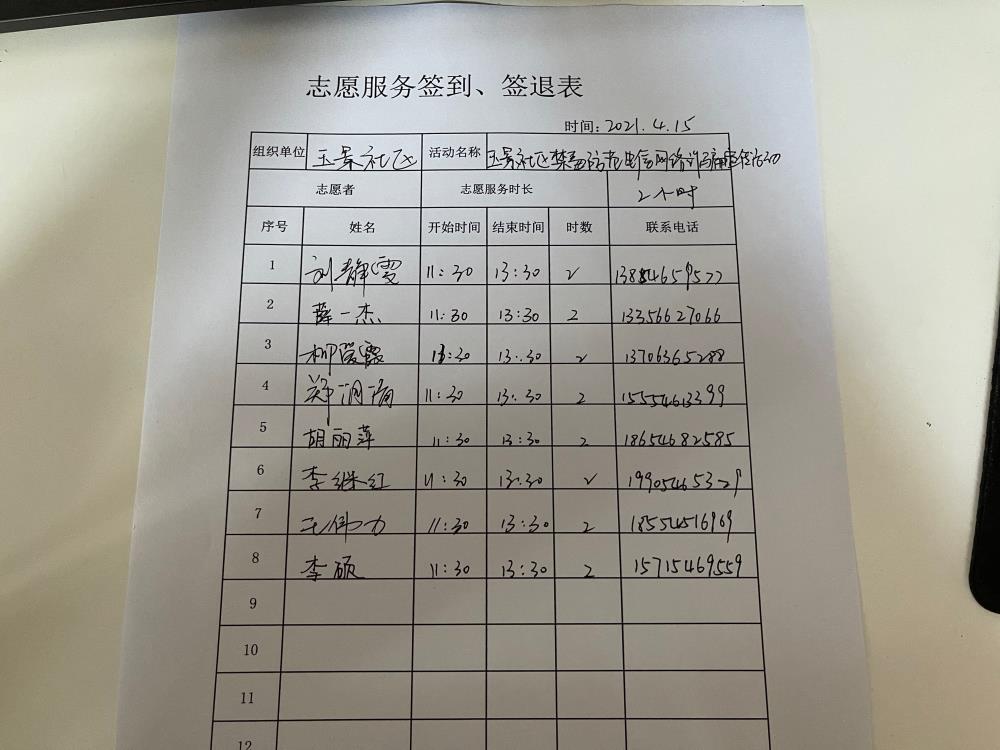 志愿服务签到、签退表
时间：2021.4.15
组织单位 玉景社区 活动名称 玉景社区 防范电信网络诈骗宣传活动
志愿者 志愿服务时长 2小时
序号 姓名 开始时间 结束时间 时数 联系电话
1 刘静雯 11:30 13:30 2
2 薛一杰 11:30 13:30 2 13356627066
3 柳 霞 13:30 2 13706365288
4 郑 11:30 13:30 2 15554613399
5 胡丽萍 11:30 13:30 2 18654682585
6 李继红 11:30 13:30 2
7 王伟力 11:30 13:30 2 18554516969
8 李硕 11:30 13:30 2 15715469559
9
10
11
12